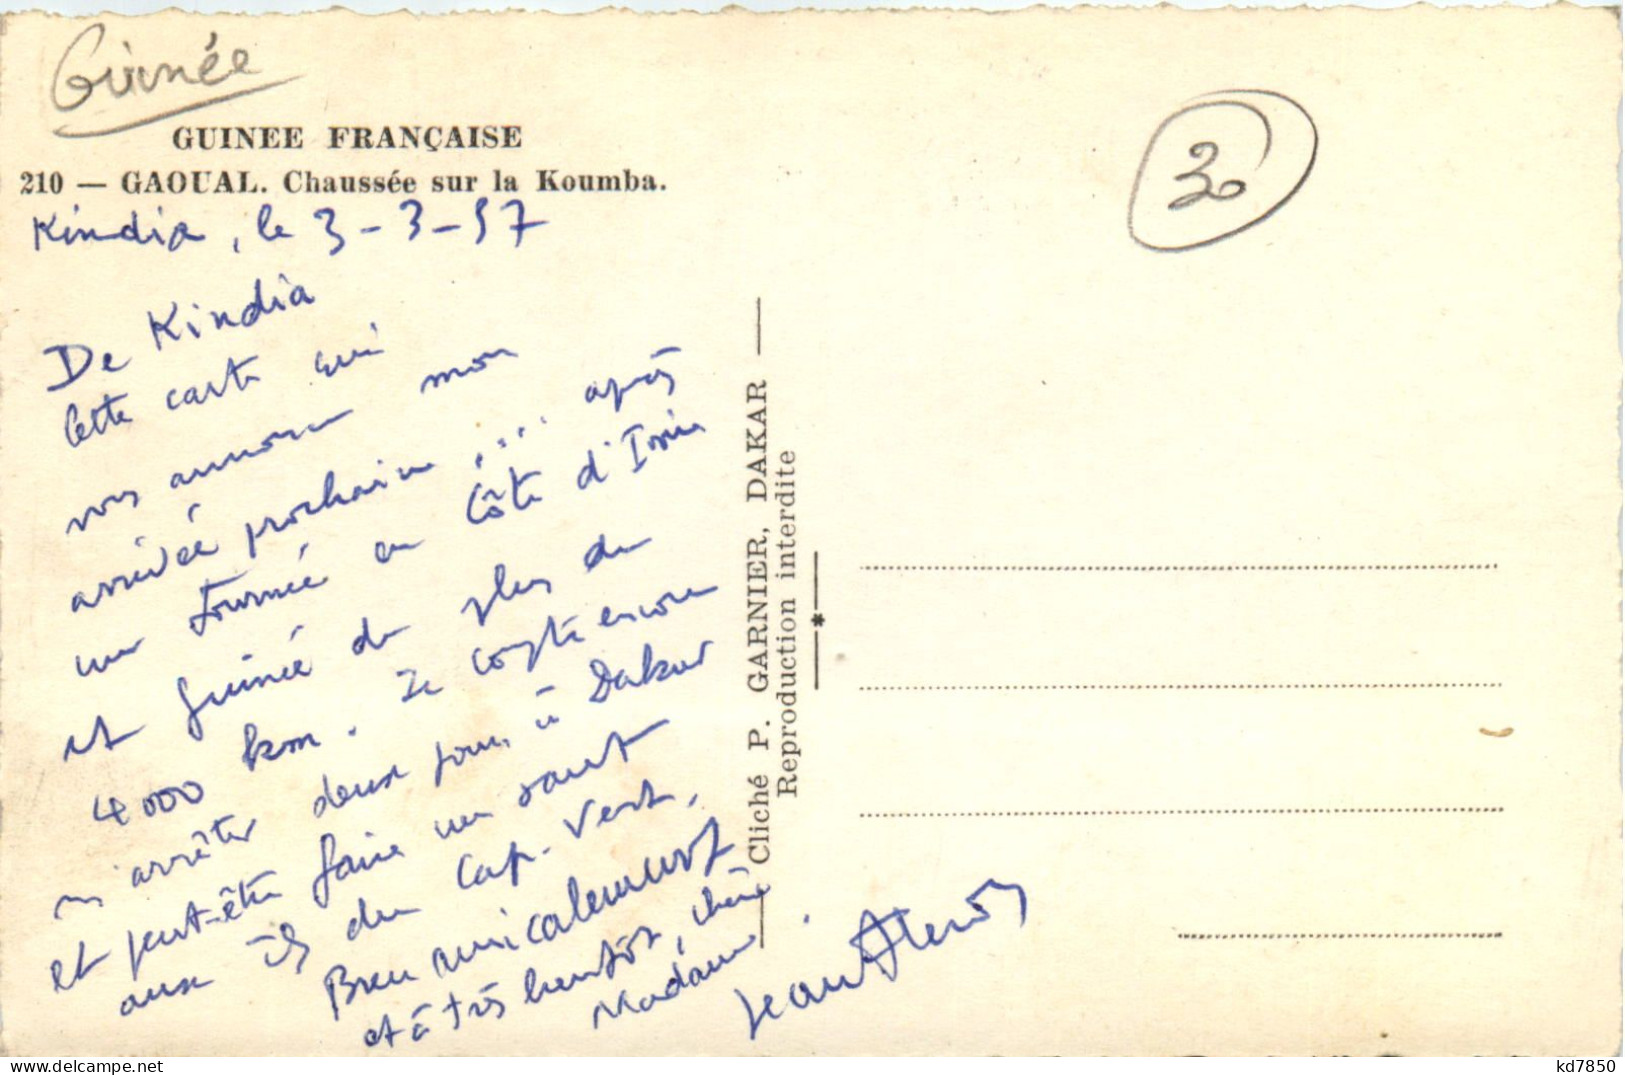 Guinée
GUINEE FRANÇAISE
210 — GAOUAL. Chaussée sur la Koumba.
30
Kindia, le 3-3-57
De Kindia
Cette carte qui
vous annonce mon
arrivée prochaine ... après
une tournée en Côte d'Ivoire
et Guinée de plus de
4000 km. Je compte encore
m'arrêter deux jours à Dakar
et peut-être faire un saut
aux îles du Cap-Vert.
Bien amicalement
et à très bientôt, chère
Madame.
Jean
Cliché P. GARNIER, DAKAR
Reproduction interdite
kd7850